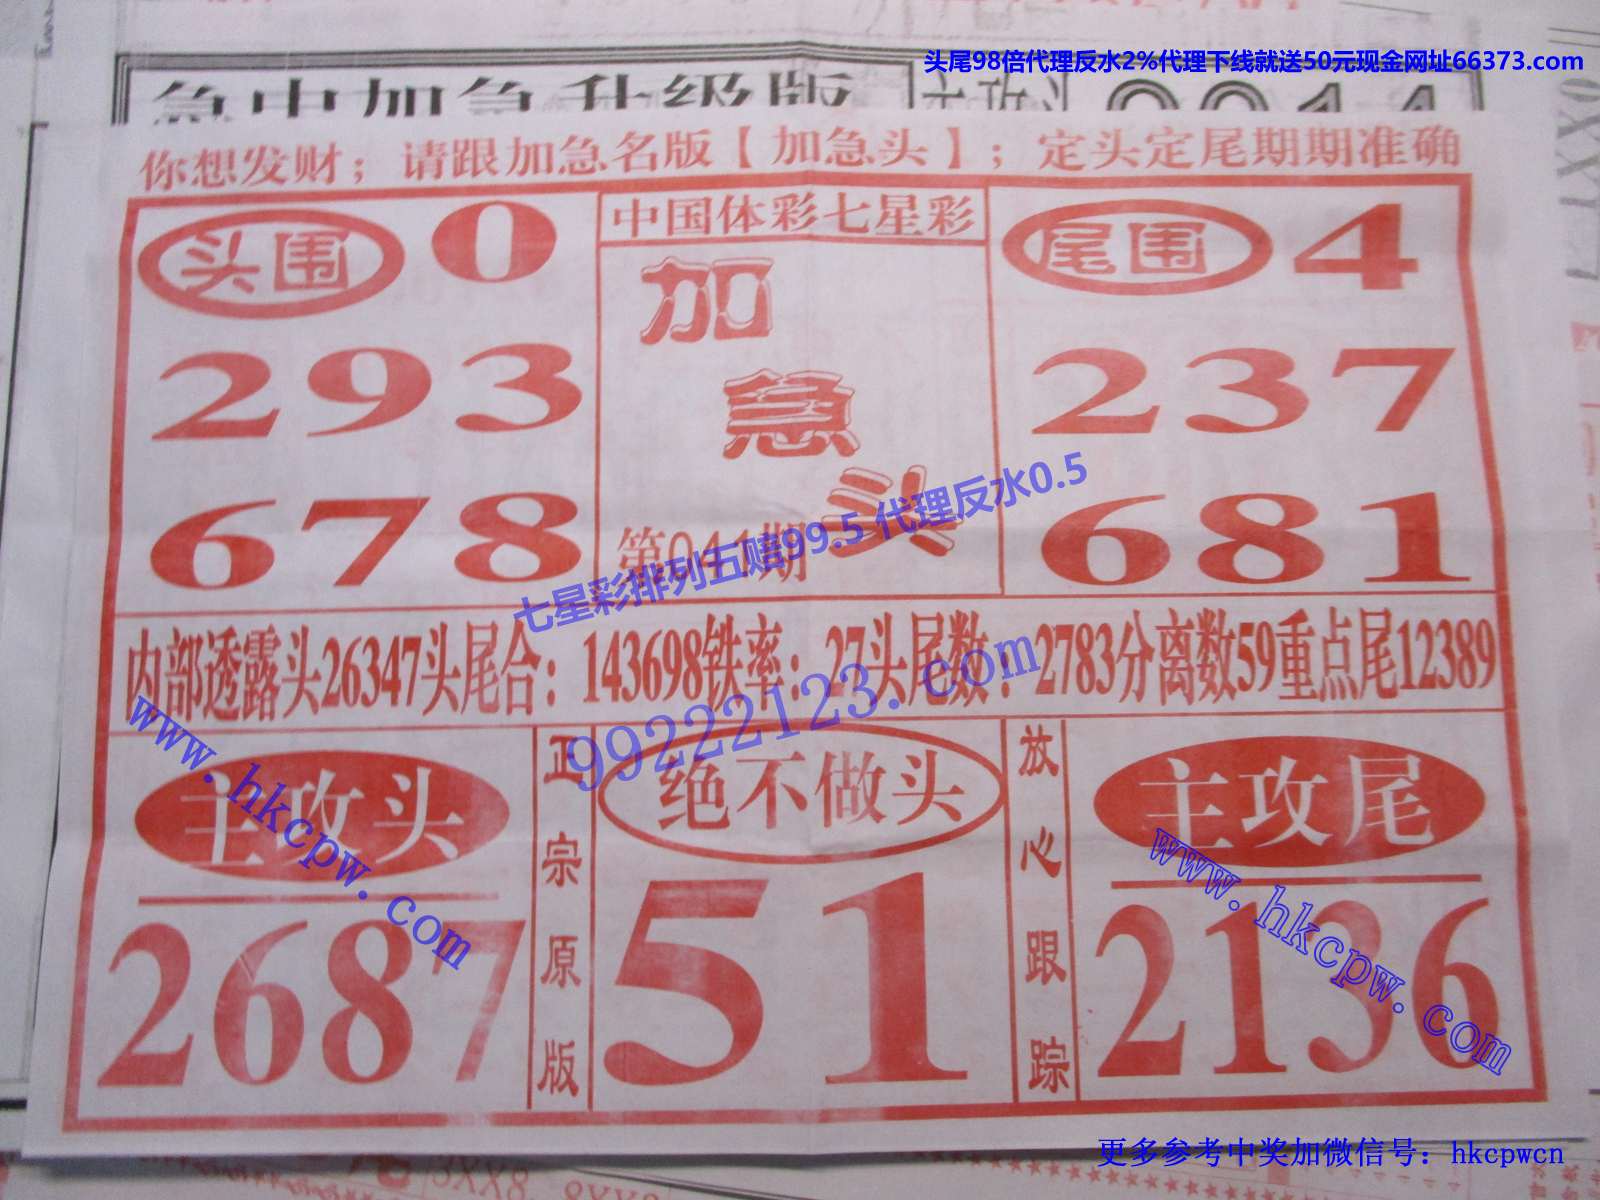 头尾98倍代理反水2%代理下线就送50元现金网址66373.com
急中加急升级版
你想发财；请跟加急名版【加急头】；定头定尾期期准确
头围 0
293
678
中国体彩七星彩
加
急
头
第041期
尾围 4
237
681
七星彩排列五赔99.5 代理反水0.5
内部透露头26347头尾合：143698铁率：27头尾数：2783分离数59重点尾12389
99222123.com
www.hkcpw.com
主攻头
2687
正宗原版
绝不做头
51
放心跟踪
主攻尾
2136
www.hkcpw.com
更多参考中奖加微信号：hkcpwcn